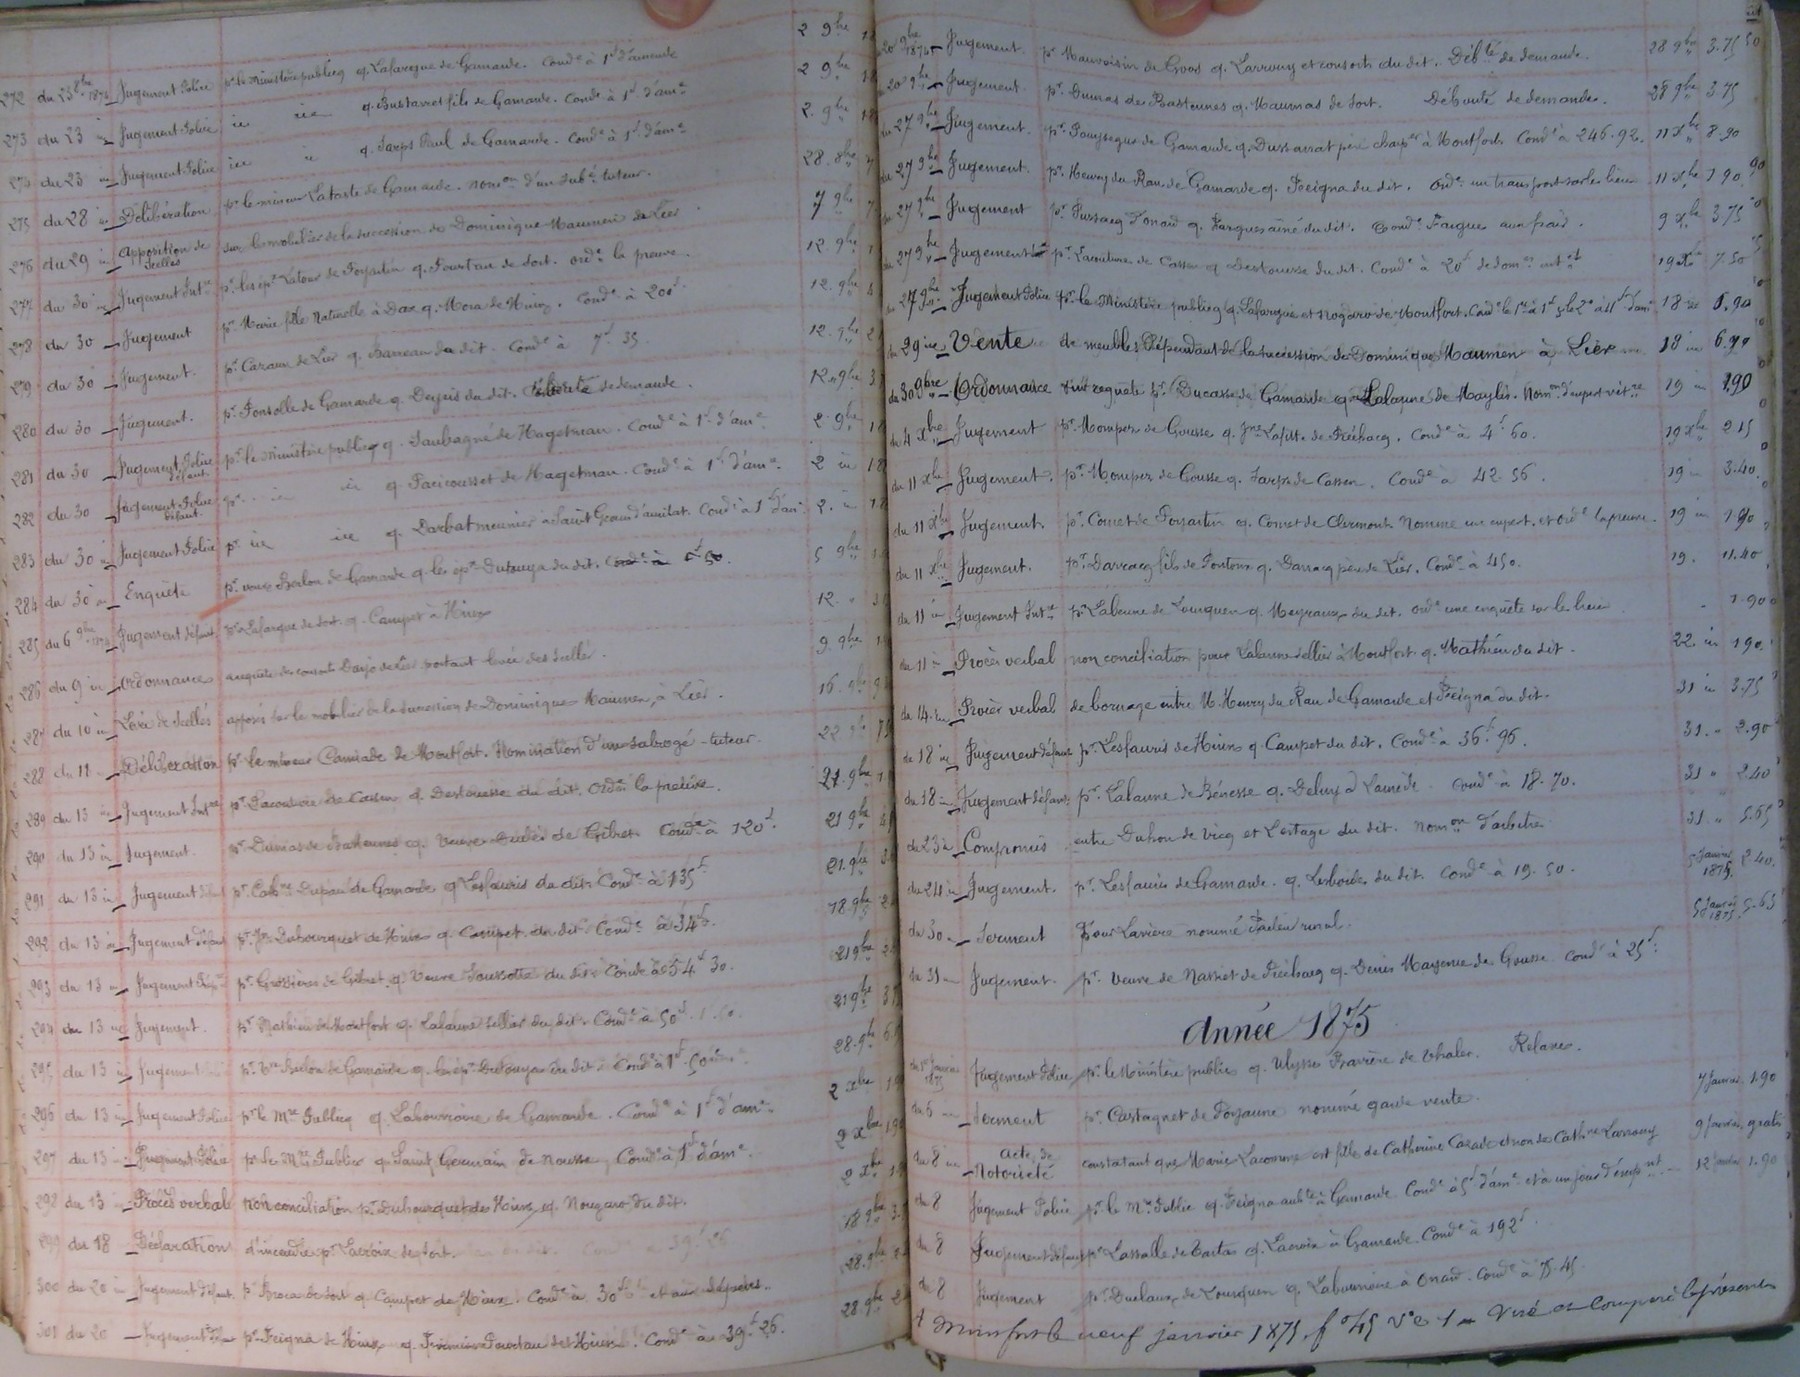 272 du 23 8bre 1874 Jugement Police pr le ministère publicq q. Lafargue de Gamarde. Condé à 1f d'amende 2 9bre
273 du 23 in Jugement Police in in q. Bustarret fils de Gamarde. Condé à 1f d'ame 2 9bre
274 du 23 in Jugement Police in in q. Tarps Paul de Gamarde. Condé à 1f d'ame 2. 9bre
275 du 28 in Délibération pr le mineur Lataste de Gamarde. nomon d'un subé tuteur. 28. 8bre
276 du 29 in Apposition de Scellés sur le mobilier de la succession de Dominique Maumen de Lier 7 9bre
277 du 30 in Jugement Intre pr les épx Latour de Poyartin q. Fourtau de Sort. Ordé la preuve. 12. 9bre
278 du 30 Jugement pr Marie fille Naturelle à Dax q. Mora de Hinx. Condé à 200f. 12. 9bre
279 du 30 Jugement. pr Cazaux de Lier q. Barreau du dit. Condé à 7f 35 12. 9bre
280 du 30 Jugement. pr Fonsolle de Gamarde q. Deyris du dit. Débouté de demande. 12 9bre
281 du 30 Jugement Police défaut pr le ministère publicq q. Saubagné de Hagetmau. Condé à 1f d'ame 2 9bre
282 du 30 Jugement Police défaut. pr in in q. Pacicousset de Hagetmau. Condé à 1f d'ame. 2 in
283 du 30 in Jugement Police pr in in q. Darbat meunier à Saint Geours d'auribat. Condé à 1f d'am 2. in
284 du 30 in Enquête pr veuve Berlon de Gamarde q. les épx Dutouya du dit. 5 9bre
285 du 6 9bre 1874 Jugement défaut. pr Lafargue de Sort. q. Campet à Hinx 12.
286 du 9 in Ordonnance a requête des consorts Darjo de Lier portant levée des scellés. 9. 9bre
287 du 10 in Levée de Scellés apposés sur le mobilier de la succession de Dominique Maumen, à Lier. 16. 9bre
288 du 11 Délibération pr le mineur Camiade de Montfort. Nomination d'un subrogé-tuteur. 22 9bre
289 du 13 in Jugement Intre pr Lacouture de Cassen q. Destouesse du dit. Ordé la preuve. 21. 9bre
290 du 13 in Jugement. pr Dumas de Bastennes q. Veuve de Gibret. Condé à 120f. 21 9bre
291 du 13 in Jugement pr Cathne Dupau de Gamarde q. Lesfauris du dit. Condé à 135f 21. 9bre
292 du 13 in Jugement défaut pr Jn Dubourguet de Hinx q. Campet du dit. Condé à 34f. 18. 9bre
293 du 13 in Jugement pr Grossières de Gibret q. Veuve du dit. Condé à 54f 30. 21 9bre
294 du 13 in Jugement. pr Mathieu de Montfort q. Lalaune sellier du dit. Condé à 50f. 21 9bre
295 du 13 in Jugement pr Ve Berlon de Gamarde q. les épx Dutouya du dit. Condé à 1f 50 28. 9bre
296 du 13 in Jugement Police pr le Mre Publicq q. Labournoire de Gamarde. Condé à 1f d'ame. 2 xbre
297 du 13 in Jugement Police pr le Mre Publicq q. Saint Germain de Nousse. Condé à 1f d'ame. 2 xbre
298 du 13 in Procès verbal non conciliation pr Dubourguet de Hinx q. Nougaro du dit. 2 xbre
299 du 18 Déclaration d'incendie pr Lacroix de Sort. 18 9bre
300 du 20 in Jugement défaut. pr Broca de Sort q. Campet de Hinx. Condé à 30f et aux dépens. 28. 9bre
301 du 20 Jugement pr Feigna de Hinx q. Fourtau de Hinx. Condé à 39f 26. 28 9bre
20 9bre 1874 Jugement. pr Mauvoisin de Goos q. Larrouy et consorts du dit. Débté de demande. 28 9bre 3.75
20 9bre Jugement. pr Dumas de Bastennes q. Maumas de Sort. Débouté de demande. 28 9bre 3.75
du 27 9bre Jugement. pr Pouysegur de Gamarde q. Dussarrat père charpr à Montfort. Condé à 246.92. 11 xbre 8.90
du 27 9bre Jugement. pr Henry du Rau de Gamarde q. Feigna du dit. Ordé un transport sur les lieux 11 xbre 1.90
du 27 9bre Jugement pr Pussacq d'Onard q. Fargues ainé du dit. Condé Fargues aux frais. 9 xbre 3.75
du 27 9bre Jugement pr Lacouture de Cassen q. Destouesse du dit. Condé à 20f de domes intts 19 xbre 7.50
du 27 9bre Jugement Police pr le Ministère publicq q. Lafargue et Nogaro de Montfort. Condé le 1er à 1f & le 2e à 11f d'am 18 in
du 29 in Vente de meubles dépendant de la succession de Dominique Maumen à Lier 18 in
du 30 9bre Ordonnance sur requête pr Ducasse de Gamarde q. Lalaune de Maylis. Nomon d'expert vétre 19 in 1.90
du 4 xbre Jugement pr Momper de Gousse q. Jne Lafitte de Préchacq. Condé à 4f 60. 19 xbre 2.15
du 11 xbre Jugement. pr Momper de Gousse q. Tarps de Cassen. Condé à 42.56. 19 in 3.40
du 11 xbre Jugement. pr Comet de Poyartin q. Comet de Clermont. Nomme un expert, et ordé la preuve. 19 in 1.90
du 11 xbre Jugement. pr Darracq fils de Pontonx q. Darracq père de Lier. Condé à 450. 19. 11.40
du 11 in Jugement Intre pr Labeune de Lourquen q. Meyraux du dit. Ordé une enquête sur les lieux 1.90
du 11 in Procès verbal non conciliation pour Lalaune sellier à Montfort q. Mathieu du dit. 22 in 1.90
du 14 in Procès verbal de bornage entre M. Henry du Rau de Gamarde et Feigna du dit. 31 in 3.75
du 18 in Jugement défaut pr Lesfauris de Hinx q. Campet du dit. Condé à 36f 96. 31. " 2.90
du 18 in Jugement défaut pr Lalaune de Bénesse q. Deluy à Laurède. Condé à 18.70. 31 " 2.40
du 23 in Compromis entre Duhon de Vicq et Lestage du dit. nomon d'arbitre 31 " 5.65
du 24 in Jugement. pr Lesfauris de Gamarde q. Lesbordes du dit. Condé à 19.50. 5 Janvier 1875. 2.40.
du 30 Serment Pour Lavière nommé Facteur rural. 5 Janvier 1875. 5.65
du 31 Jugement. pr veuve de Nassiet de Préchacq q. Denis Mayence de Gousse. Condé à 25f.
Année 1875
du 1er Janvier 1875 Jugement Police pr le Ministère publicq q. Ulysse Barrère de Thaler. Relaxe.
du 6 Serment pr Castagnet de Poyanne nommé garde vente. 7 Janvier. 1.90
du 8 in acte de Notoriété constatant que Marie Lacomme est fille de Catherine Cazade et non de Cathne Larrouy 9 Janvier, gratis
du 8 Jugement Police pr le Mre Public q. Feigna aubte à Gamarde. Condé à 5f d'ame et à un jour d'empnt. 12 Janvier 1.90
du 8 Jugement défaut pr Lassalle de Tartas q. Lacroix à Gamarde. Condé à 192f.
du 8 Jugement pr Duclaux de Lourquen q. Labournoire à Onard. Condé à 75.45
Montfort le neuf janvier 1875 f° 45 Ve 1 Visé et Comparé le présent